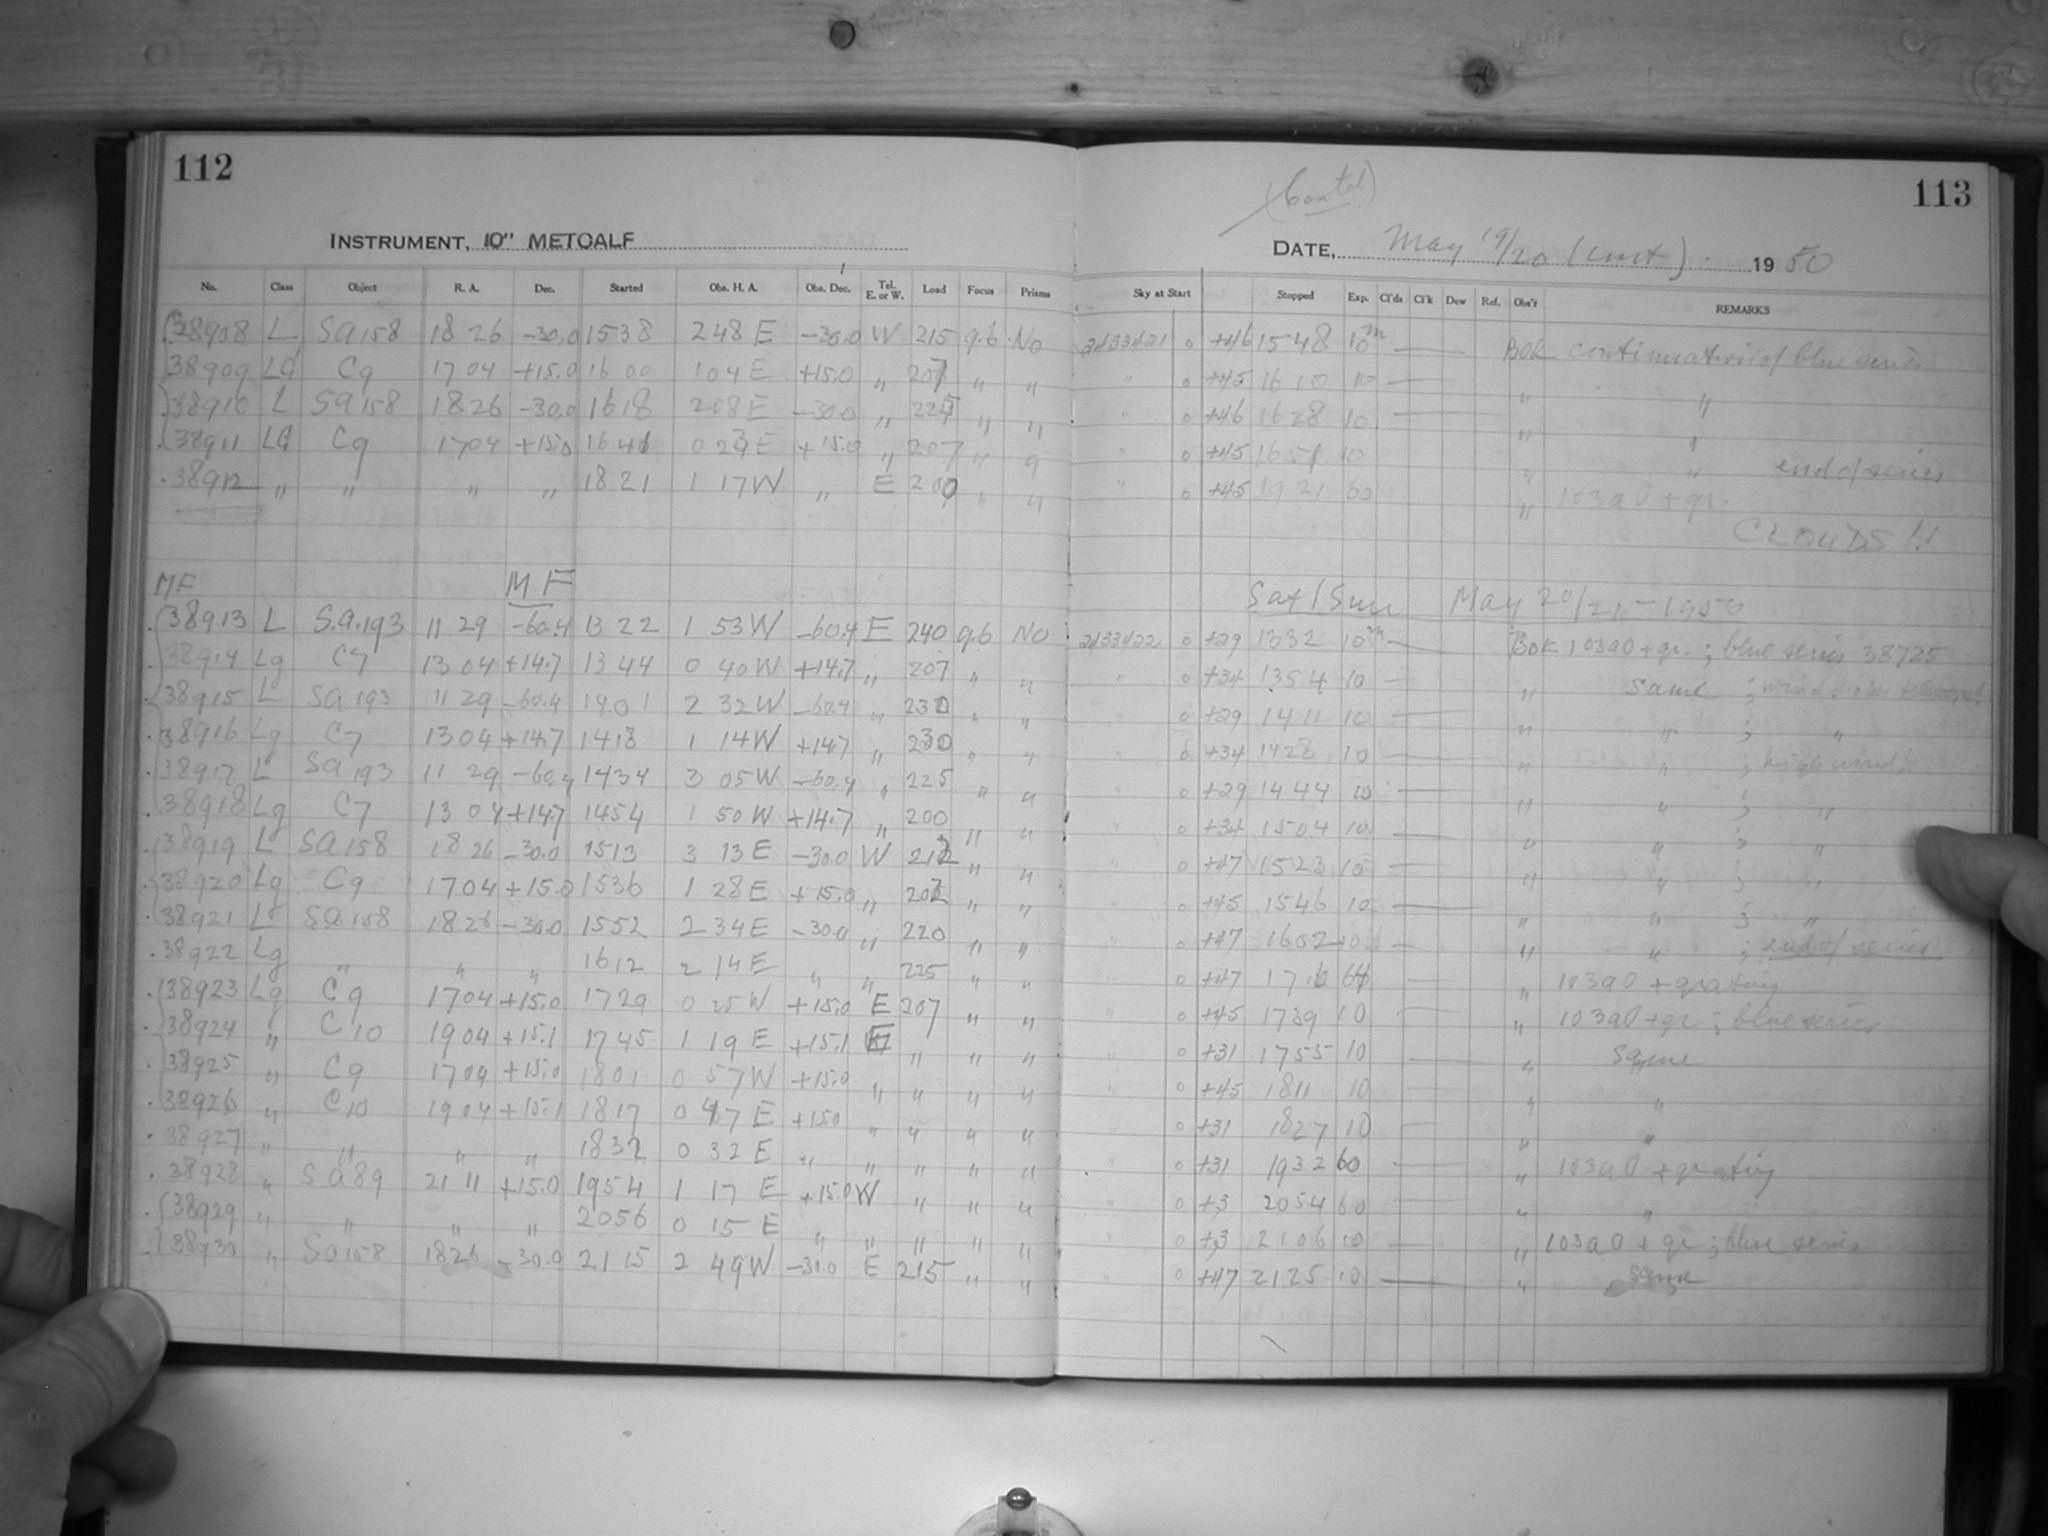 112
INSTRUMENT, 10" METCALF
No. Class Object R. A. Dec. Started Obs. H. A. Obs. Dec. Tel. E. or W. Load Focus Prisms
38908 L Sa158 18 26 -30.0 1538 2 48 E -30.0 W 215 9.6 No
38909 LG C9 17 04 +15.0 16 00 1 04 E +15.0 " 207 " "
38910 L Sa158 18 26 -30.0 1618 2 08 E -30.0 " 225 " "
38911 LG C9 1704 +15.0 1641 0 23 E +15.0 " 207 " "
38912 " " " " 1821 1 17 W " E 200 " "
MF MF
38913 L S.a.193 11 29 -60.4 13 22 1 53 W -60.4 E 240 9.6 No
38914 Lg C7 13 04 +14.7 1344 0 40 W +14.7 " 207 " "
38915 L Sa 193 11 29 -60.4 1401 2 32 W -60.4 " 230 " "
38916 Lg C7 13 04 +14.7 1418 1 14 W +14.7 " 230 " "
38917 L Sa 193 11 29 -60.4 1434 3 05 W -60.4 " 225 " "
38918 Lg C7 13 04 +14.7 1454 1 50 W +14.7 " 200 " "
38919 L Sa 158 18 26 -30.0 1513 3 13 E -30.0 W 212 " "
38920 Lg C9 1704 +15.0 1536 1 28 E +15.0 " 202 " "
38921 L Sa 158 18 26 -30.0 1552 2 34 E -30.0 " 220 " "
38922 Lg " " " 1612 2 14 E " " 225 " "
38923 Lg C9 1704 +15.0 1729 0 25 W +15.0 E 207 " "
38924 " C10 1904 +15.1 1745 1 19 E +15.1 E " " "
38925 " C9 1704 +15.0 1801 0 57 W +15.0 " " " "
38926 " C10 1904 +15.1 1817 0 47 E +15.0 " " " "
38927 " " " " 1832 0 32 E " " " " "
38928 " Sa89 21 11 +15.0 1954 1 17 E +15.0 W " " "
38929 " " " " 2056 0 15 E " " " " "
38930 " Sa158 1826 -30.0 2115 2 49 W -30.0 E 215 " "
(Contd)
113
DATE, May 19/20 (cont) 19 50
Sky at Start Stopped Exp. Cl'ds Cl'k Dew Ref. Obs'r REMARKS
2433421 0 +46 1548 10m BOK continuation of blue series
" 0 +45 16 10 10 " "
" 0 +46 1628 10 " "
" 0 +45 1651 10 " " end of series
" 0 +45 1921 60 " 103a0 + gr.
CLOUDS !!
Sat/Sun May 20/21 - 1950
2433422 0 +29 1332 10m BOK 103a0 + gr. ; blue series 38725
" 0 +34 1354 10 " same ; wind shakes telescope!
" 0 +29 1411 10 " " ; "
" 0 +34 1428 10 " " ; high wind!
" 0 +29 1444 10 " " ; "
" 0 +34 1504 10 " " ; "
" 0 +47 1523 10 " " ; "
" 0 +45 1546 10 " " ; "
" 0 +47 1602 10 " " ; end of series
" 0 +47 1716 64 " 103a0 + grating
" 0 +45 1739 10 " 103a0 + gr ; blue series
" 0 +31 1755 10 " same
" 0 +45 1811 10 " "
" 0 +31 1827 10 " "
" 0 +31 1932 60 " 103a0 + grating
" 0 +3 2054 60 " "
" 0 +3 2106 10 " 103a0 + gr ; blue series
" 0 +47 2125 10 " same